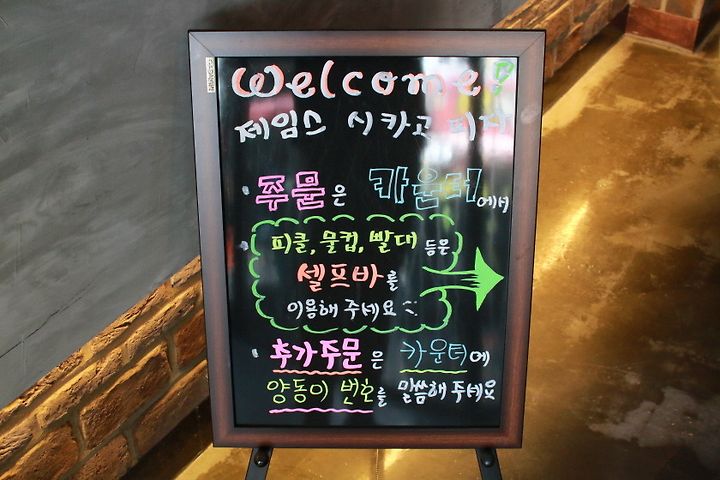 Welcome!
제임스 시카고 피자
· 주문은 카운터에서
· 피클, 물컵, 빨대 등은
셀프바를
이용해 주세요
· 추가주문은 카운터에
양동이 번호를 말씀해 주세요